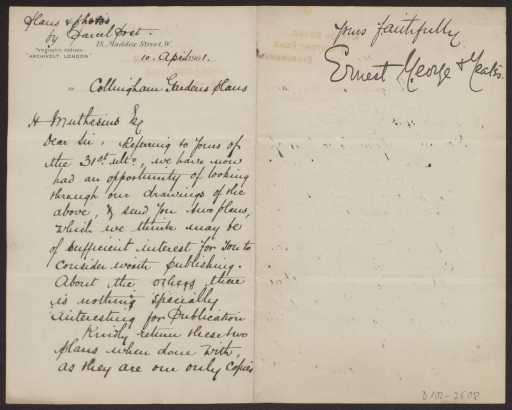 Plans & photos
by Parcel Post.
18, Maddox Street, W.
Telegraphic Address
"ARCHIVOLT, LONDON"
10. April 1901.
Collingham Gardens plans
H Muthesius Esq
Dear Sir, Referring to yours of
the 31st ulto, we have now
had an opportunity of looking
through our drawings of the
above, & send you two plans,
which we think may be
of sufficient interest for you to
consider worth publishing.
About the others there
is nothing specially
interesting for Publication
Kindly return these two
plans when done with,
as they are our only copies
Yours faithfully
Ernest George & Yeates.